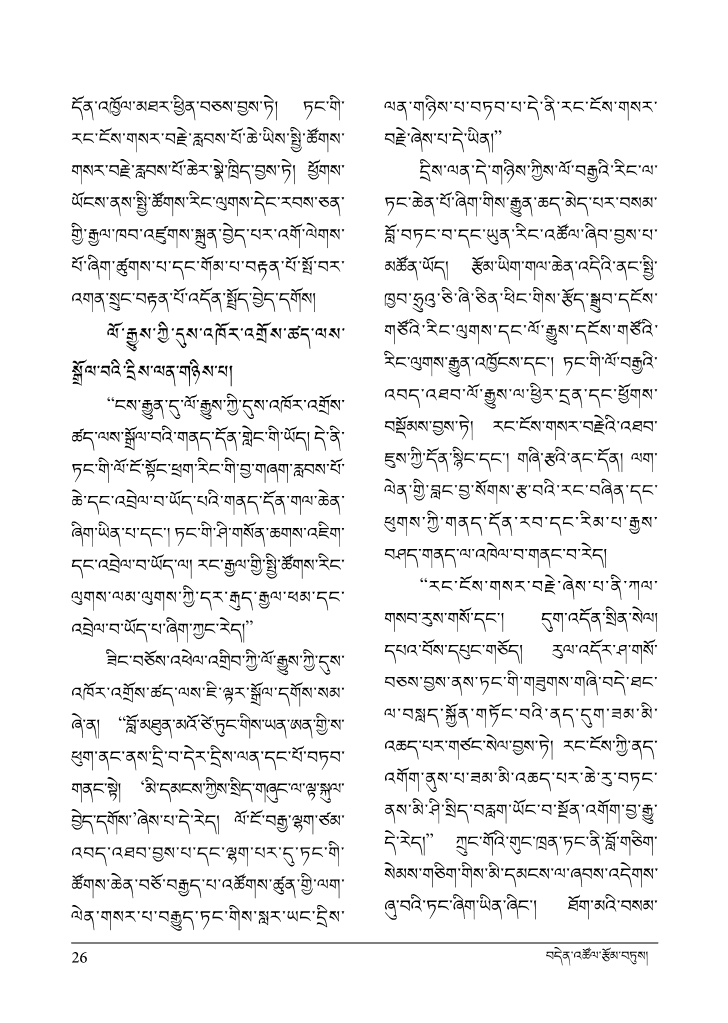 དོན་འཁྱོལ་མཐར་ཕྱིན་བཅས་བྱས་ཏེ།   ཏང་གི་
རང་ངོས་གསར་བརྗེ་རླབས་པོ་ཆེ་ཡིས་སྤྱི་ཚོགས་
གསར་བརྗེ་རླབས་པོ་ཆེར་སྣེ་ཁྲིད་བྱས་ཏེ།  ཕྱོགས་
ཡོངས་ནས་སྤྱི་ཚོགས་རིང་ལུགས་དེང་རབས་ཅན་
གྱི་རྒྱལ་ཁབ་འཛུགས་སྐྲུན་བྱེད་པར་འགོ་ལེགས་
པོ་ཞིག་ཚུགས་པ་དང་གོམ་པ་བརྟན་པོ་སྤོ་བར་
འགན་སྲུང་བརྟན་པོ་འདོན་སྤྲོད་བྱེད་དགོས།
ལོ་རྒྱུས་ཀྱི་དུས་འཁོར་འགྲོས་ཚད་ལས་
སྒྲོལ་བའི་དྲིས་ལན་གཉིས་པ།
“ངས་རྒྱུན་དུ་ལོ་རྒྱུས་ཀྱི་དུས་འཁོར་འགྲོས་
ཚད་ལས་སྒྲོལ་བའི་གནད་དོན་གླེང་གི་ཡོད། དེ་ནི་
ཏང་གི་ལོ་ངོ་སྟོང་ཕྲག་རིང་གི་བྱ་གཞག་རླབས་པོ་
ཆེ་དང་འབྲེལ་བ་ཡོད་པའི་གནད་དོན་གལ་ཆེན་
ཞིག་ཡིན་པ་དང་། ཏང་གི་ཤི་གསོན་ཆགས་འཇིག་
དང་འབྲེལ་བ་ཡོད་ལ། རང་རྒྱལ་གྱི་སྤྱི་ཚོགས་རིང་
ལུགས་ལམ་ལུགས་ཀྱི་དར་རྒུད་རྒྱལ་ཕམ་དང་
འབྲེལ་བ་ཡོད་པ་ཞིག་ཀྱང་རེད།”
ཟིང་བཅོས་འཕེལ་འགྲིབ་ཀྱི་ལོ་རྒྱུས་ཀྱི་དུས་
འཁོར་འགྲོས་ཚད་ལས་ཇི་ལྟར་སྒྲོལ་དགོས་སམ་
ཞེ་ན།  “བློ་མཐུན་མའོ་ཙེ་ཏུང་གིས་ཡན་ཨན་གྱི་ས་
ཕུག་ནང་ནས་དྲི་བ་དེར་དྲིས་ལན་དང་པོ་བཏབ་
གནང་སྟེ།  ‘མི་དམངས་ཀྱིས་སྲིད་གཞུང་ལ་ལྟ་སྐུལ་
བྱེད་དགོས་’ཞེས་པ་དེ་རེད།  ལོ་ངོ་བརྒྱ་ལྷག་ཙམ་
འབད་འཐབ་བྱས་པ་དང་ལྷག་པར་དུ་ཏང་གི་
ཚོགས་ཆེན་བཅོ་བརྒྱད་པ་འཚོགས་ཚུན་གྱི་ལག་
ལེན་གསར་པ་བརྒྱུད་ཏང་གིས་སླར་ཡང་དྲིས་
ལན་གཉིས་པ་བཏབ་པ་དེ་ནི་རང་ངོས་གསར་
བརྗེ་ཞེས་པ་དེ་ཡིན།”
དྲིས་ལན་དེ་གཉིས་ཀྱིས་ལོ་བརྒྱའི་རིང་ལ་
ཏང་ཆེན་པོ་ཞིག་གིས་རྒྱུན་ཆད་མེད་པར་བསམ་
བློ་བཏང་བ་དང་ཡུན་རིང་འཚོལ་ཞིབ་བྱས་པ་
མཚོན་ཡོད།   རྩོམ་ཡིག་གལ་ཆེན་འདིའི་ནང་སྤྱི་
ཁྱབ་ཧྲུའུ་ཅི་ཞི་ཅིན་ཕིང་གིས་རྩོད་སྒྲུབ་དངོས་
གཙོའི་རིང་ལུགས་དང་ལོ་རྒྱུས་དངོས་གཙོའི་
རིང་ལུགས་རྒྱུན་འཁྱོངས་དང་།  ཏང་གི་ལོ་བརྒྱའི་
འབད་འཐབ་ལོ་རྒྱུས་ལ་ཕྱིར་དྲན་དང་ཕྱོགས་
བསྡོམས་བྱས་ཏེ།   རང་ངོས་གསར་བརྗེའི་འཐབ་
ཇུས་ཀྱི་དོན་སྙིང་དང་། གཞི་རྩའི་ནང་དོན། ལག་
ལེན་གྱི་བླང་བྱ་སོགས་རྩ་བའི་རང་བཞིན་དང་
ཕུགས་ཀྱི་གནད་དོན་རབ་དང་རིམ་པ་རྒྱས་
བཤད་གནད་ལ་འཁེལ་བ་གནང་བ་རེད།
“རང་ངོས་གསར་བརྗེ་ཞེས་པ་ནི་ཀལ་
གསབ་རུས་གསོ་དང་།   དུག་འདོན་སྲིན་སེལ།
དཔའ་བོས་དཔུང་གཅོད།   རུལ་འདོར་ཤ་གསོ་
བཅས་བྱས་ནས་ཏང་གི་གཟུགས་གཞི་བདེ་ཐང་
ལ་བསླད་སྐྱོན་གཏོང་བའི་ནད་དུག་ཟམ་མི་
འཆད་པར་གཙང་སེལ་བྱས་ཏེ།  རང་ངོས་ཀྱི་ནད་
འགོག་ནུས་པ་ཟམ་མི་འཆད་པར་ཆེ་རུ་བཏང་
ནས་མི་ཤི་སྲིད་བརླག་ཡོང་བ་སྔོན་འགོག་བྱ་རྒྱུ་
དེ་རེད།”  ཀྲུང་གོའི་གུང་ཁྲན་ཏང་ནི་བློ་གཅིག་
སེམས་གཅིག་གིས་མི་དམངས་ལ་ཞབས་འདེགས་
ཞུ་བའི་ཏང་ཞིག་ཡིན་ཞིང་།   ཐོག་མའི་བསམ་
26
བདེན་འཚོལ་རྩོམ་བཏུས།